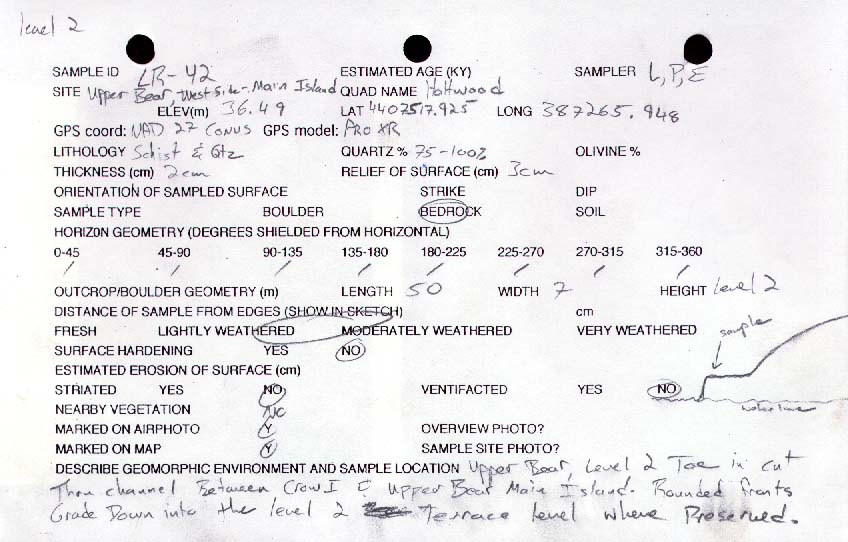 level 2
SAMPLE ID LR-42 ESTIMATED AGE (KY) SAMPLER L, P, E
SITE Upper Bear, West Side - Main Island QUAD NAME Holtwood
ELEV(m) 36.49 LAT 4407517.925 LONG 387265.948
GPS coord: NAD 27 CONUS GPS model: PRO XR
LITHOLOGY Schist & Qtz QUARTZ % 75-100% OLIVINE %
THICKNESS (cm) 2cm RELIEF OF SURFACE (cm) 3cm
ORIENTATION OF SAMPLED SURFACE STRIKE DIP
SAMPLE TYPE BOULDER BEDROCK SOIL
HORIZON GEOMETRY (DEGREES SHIELDED FROM HORIZONTAL)
0-45 45-90 90-135 135-180 180-225 225-270 270-315 315-360
/ / / / / / / /
OUTCROP/BOULDER GEOMETRY (m) LENGTH 50 WIDTH 7 HEIGHT level 2
DISTANCE OF SAMPLE FROM EDGES (SHOW IN SKETCH) cm
FRESH LIGHTLY WEATHERED MODERATELY WEATHERED VERY WEATHERED sample
SURFACE HARDENING YES NO
ESTIMATED EROSION OF SURFACE (cm)
STRIATED YES NO VENTIFACTED YES NO
NEARBY VEGETATION NO water line
MARKED ON AIRPHOTO Y OVERVIEW PHOTO?
MARKED ON MAP Y SAMPLE SITE PHOTO?
DESCRIBE GEOMORPHIC ENVIRONMENT AND SAMPLE LOCATION Upper Bear, Level 2 Toe in cut
Thru channel Between Crow I & Upper Bear Main Island. Rounded fronts
Grade Down into the level 2 terrace level where Preserved.